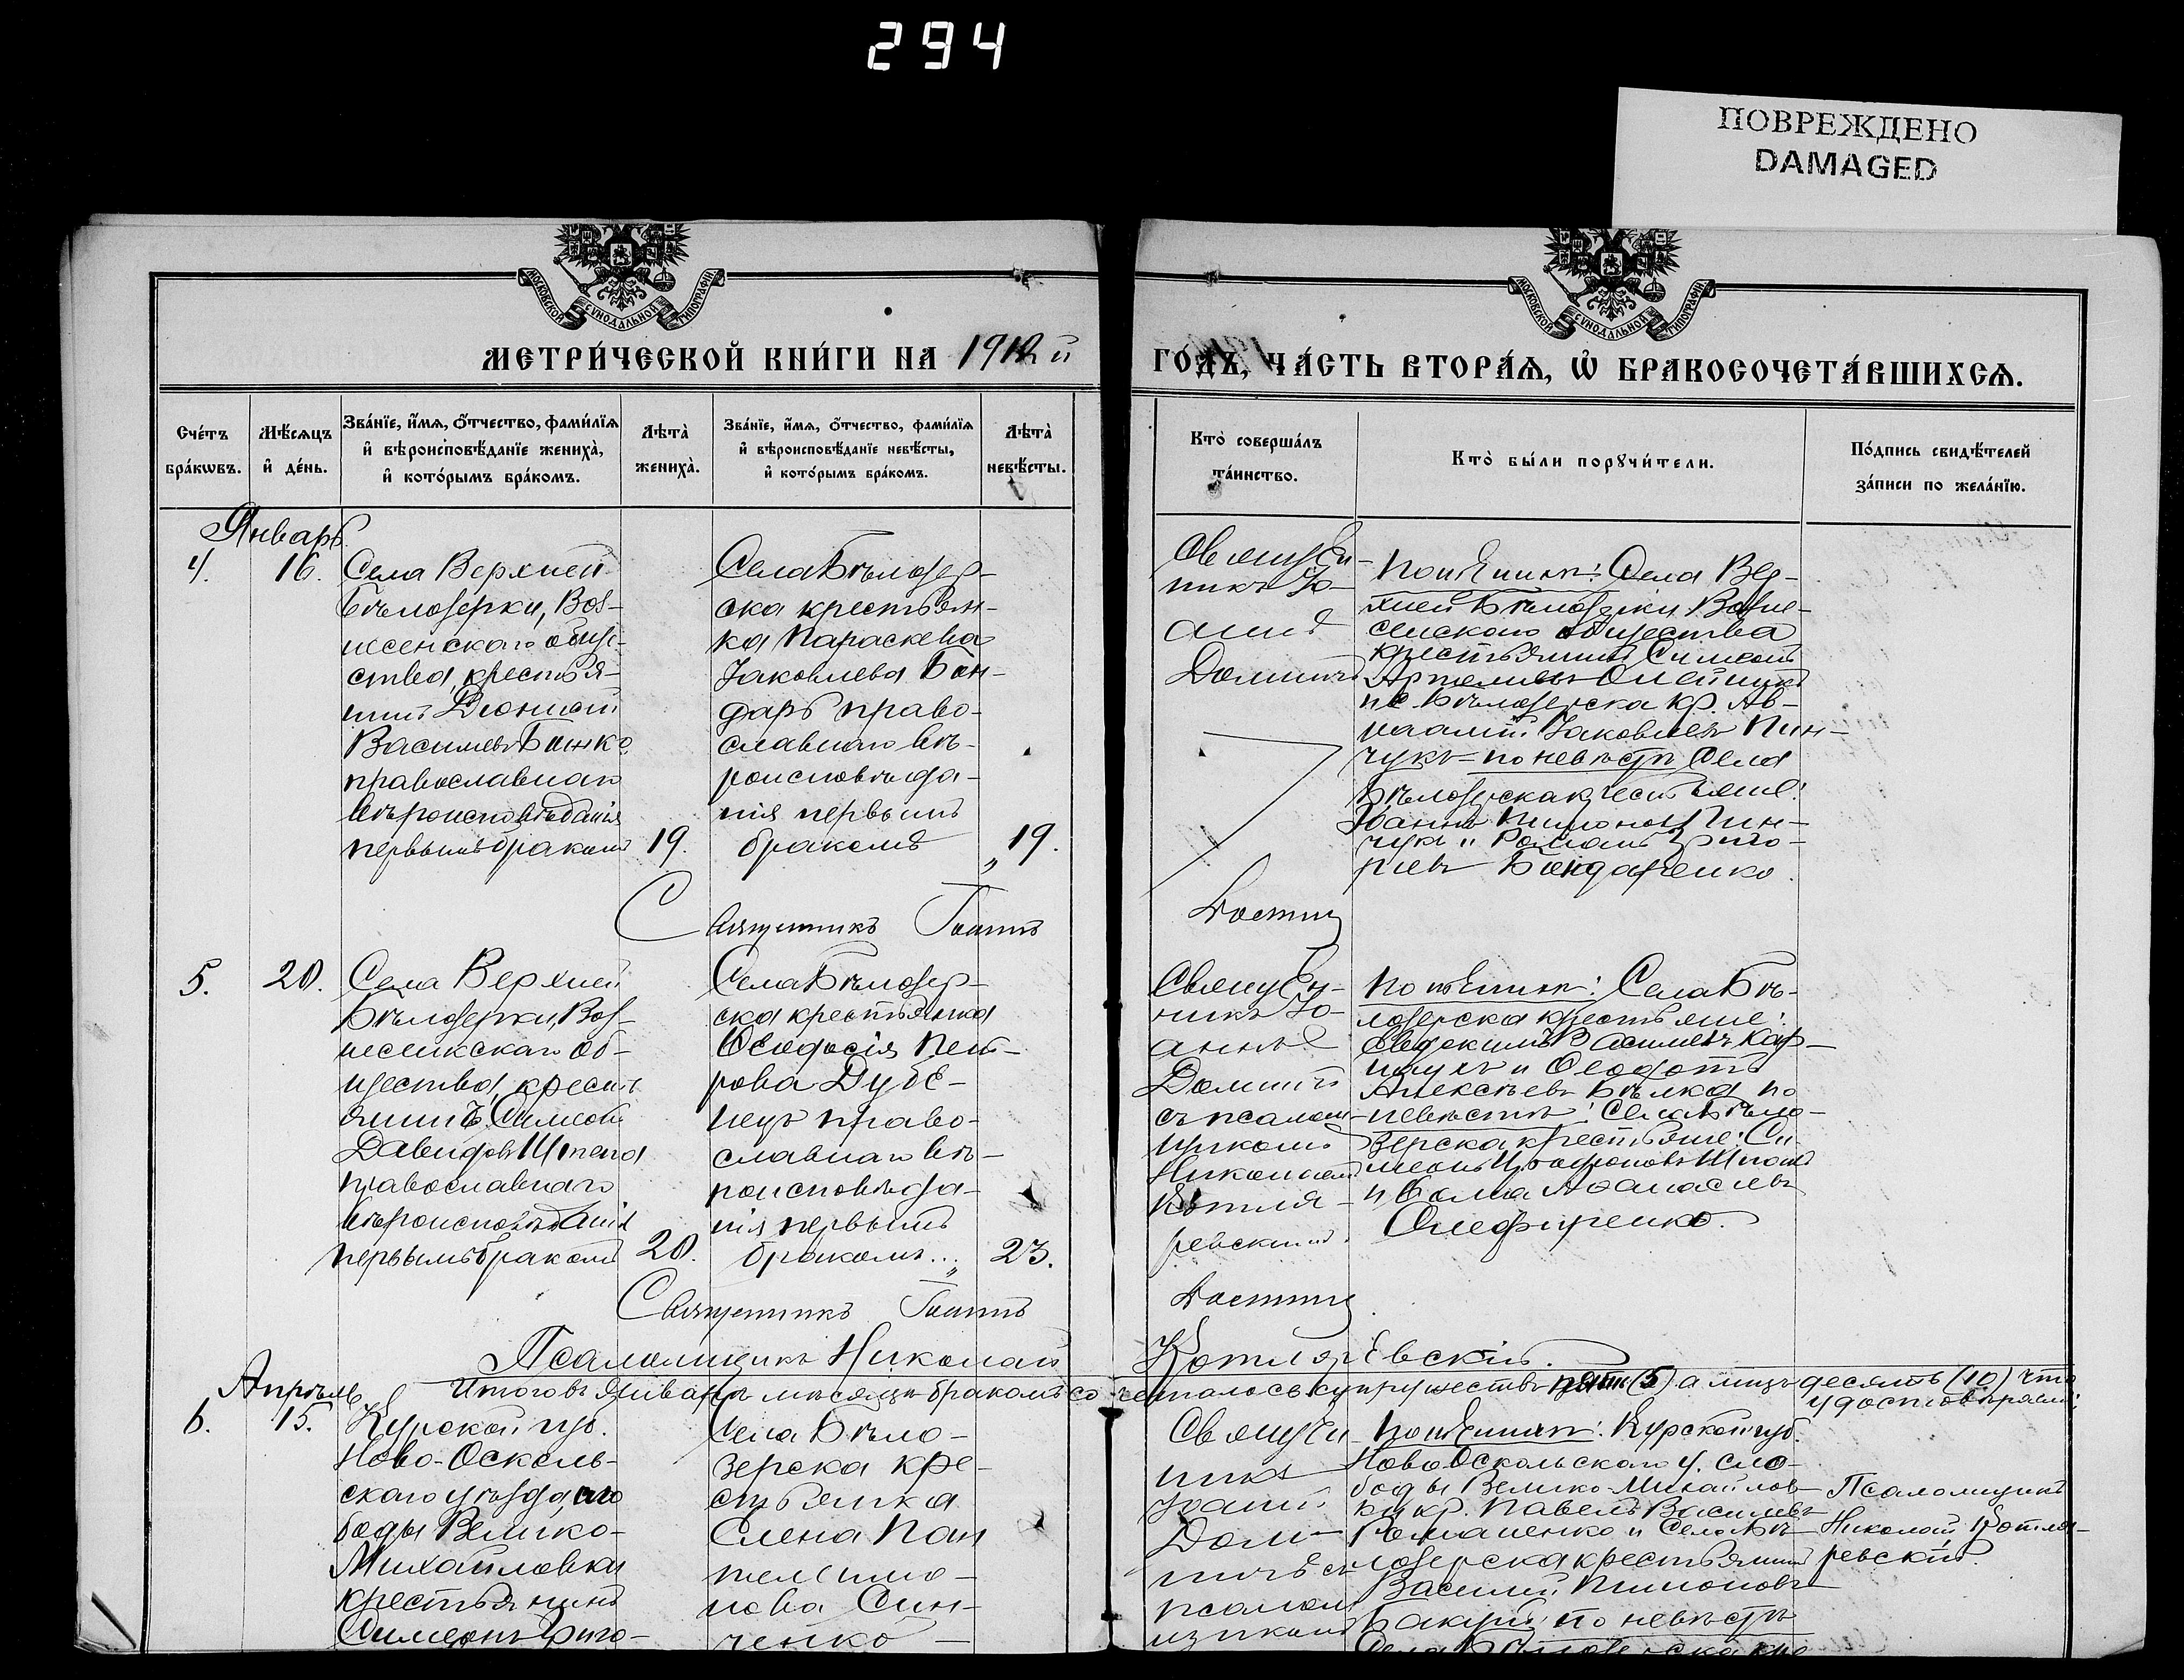 294
ПОВРЕЖДЕНО
DAMAGED
МОСКОВСКОЙ СУНОДАЛЬНОЙ ТИПОГРАФІИ
МОСКОВСКОЙ СУНОДАЛЬНОЙ ТИПОГРАФІИ
МЕТРИ́ЧЕСКОЙ КНИ́ГИ НА 1912й
ГО́ДЪ, ЧА́СТЬ ВТОРА́Ѧ, Ѡ҆ БРАКОСОЧЕТА́ВШИХСѦ.
Сче́тъ
бра́кѡвъ.
Мѣ́сѧцъ
и҆ де́нь.
Зва́нїе, и҆́мѧ, ѻ҆́тчество, фами́лїѧ
и҆ вѣроисповѣ́данїе жениха̀,
и҆ кото́рымъ бра́комъ.
Лѣта̀
жениха̀.
Зва́нїе, и҆́мѧ, ѻ҆́тчество, фами́лїѧ
и҆ вѣроисповѣ́данїе невѣ́сты,
и҆ кото́рымъ бра́комъ.
Лѣта̀
невѣ́сты.
Кто̀ соверша́лъ
та́инство.
Кто̀ бы́ли порꙋчи́тели.
По́дпись свидѣ́телей
за́писи по жела́нїю.
Январь
4.
16.
Села Верхней
Бѣлозерки, Воз-
несенскаго обще-
ства, крестья-
нинъ Діонисій
Васильевъ Божко
православнаго
вѣроисповѣданія
первымъ бракомъ
19.
Села Бѣлозер-
ска крестьян-
ка Параскева
Іаковлева Бон-
дарь право-
славнаго вѣ-
роисповѣда-
нія первымъ
бракомъ
„ 19.
Священ-
никъ Іо-
аннъ
Домничъ
По женихѣ: Села Вер-
хней Бѣлозерки Возне-
сенскаго общества
крестьянинъ Симеонъ
Артемьевъ Олейникъ
и с. Бѣлозерска кр. Ав-
раамій Іаковлевъ Пин-
чукъ – по невѣстѣ Села
Бѣлозерска крестьяне:
Іоаннъ Тимоновъ Пин-
чукъ и Романъ Григо-
ріевъ Бондаренко.
Священникъ Іоаннъ
Домничъ
5.
20.
Села Верхней
Бѣлозерки, Воз-
несенскскаго об-
щества, кресть-
янинъ Симеонъ
Давидовъ Шпета
православнаго
вѣроисповѣданія
первымъ бракомъ
20.
Села Бѣлозер-
ска крестьянка
Ѳеодосія Пет-
рова Дубе-
нецъ право-
славнаго вѣ-
роисповѣда-
нія первымъ
бракомъ..„
23.
Священ-
никъ Іо-
аннъ
Домничъ
съ псалом-
щикомъ
Николаемъ
Котля-
ревскимъ.
По женихѣ: Села Бѣ-
лозерска крестьяне:
Евдокимъ Васильевъ Кар-
и Ѳеодотъ
Алексѣевъ Бѣлка по
невѣстѣ: Села Бѣло-
зерска крестьяне: Си-
меонъ
и Ѳома Аѳанасіевъ
Олефиренко.
Священникъ Іоаннъ
Домничъ
Псаломщикъ Николай
Котляревскій.
Итого въ Январѣ мѣсяцѣ бракомъ сочеталось супружествъ пять (5) а лицъ десять (10) что
удостовѣряемъ:
Апрѣль
6.
15.
Курской губ.
Ново-Осколь-
скаго уѣзда сло
боды Велико-
Михайловки
крестьянинъ
Симеонъ Григо-
Села Бѣло-
зерска кре-
стьянка
Елена Пан
телеимо-
нова Син-
ченко –
Священ
никъ
Іоаннъ
Дом-
ничъ съ
псалом
щикомъ
По женихѣ: Курской губ.
Ново Оскольскаго у. сло-
боды Велико-Михайлов-
ки кр. Павелъ Васильевъ
Романенко и Села Бѣ-
лозерска крестьянинъ
Василій Тимоновъ
Бакай, по невѣстѣ
Села Бѣлозерска кре
Псаломщикъ
Николай Котля-
ревскій.